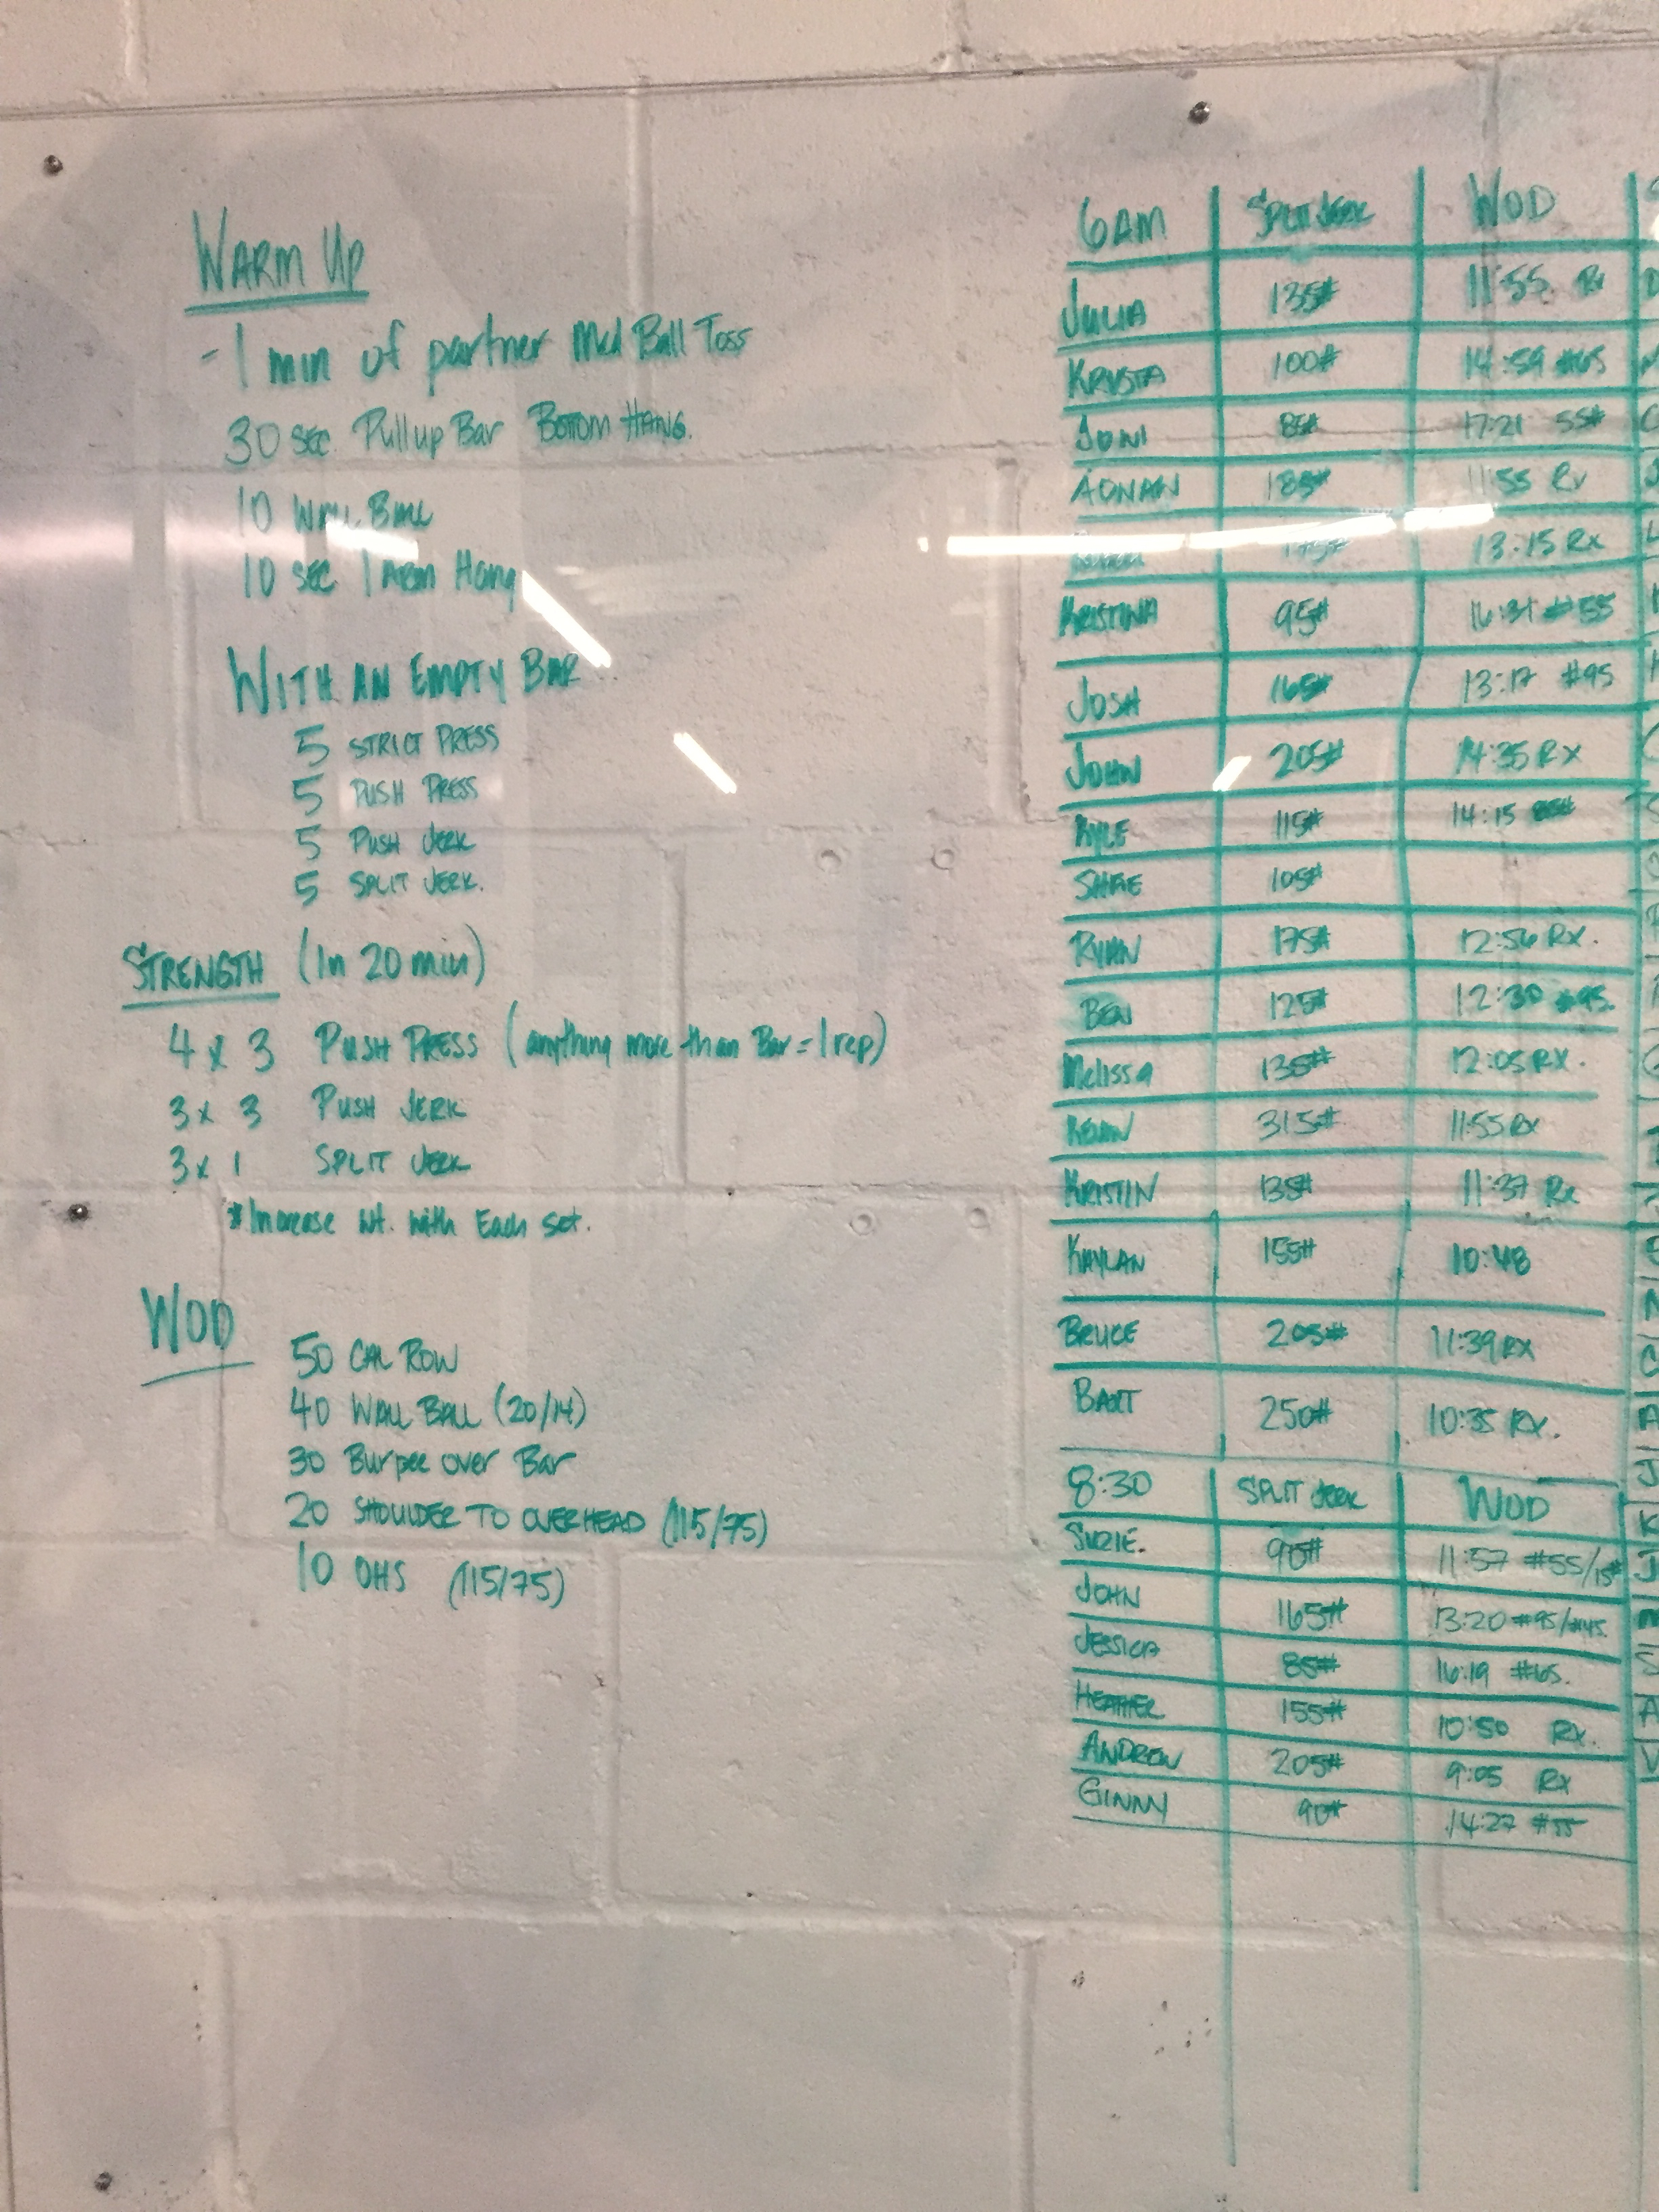 WARM UP
- 1 min of partner Med Ball Toss
30 sec. Pullup Bar Bottom Hang.
10 Wall Ball
10 sec 1 Arm Hang
WITH AN EMPTY BAR
5 STRICT PRESS
5 PUSH PRESS
5 PUSH JERK
5 SPLIT JERK.
STRENGTH (In 20 min)
4 x 3 PUSH PRESS (anything more than Bar = 1 rep)
3 x 3 PUSH JERK
3 x 1 SPLIT JERK
*Increase Wt. with Each Set.
WOD
50 CAL ROW
40 WALL BALL (20/14)
30 Burpee over Bar
20 SHOULDER TO OVERHEAD (115/75)
10 OHS (115/75)
6AM SPLIT JERK WOD
JULIA 135# 11:55 Rx
KRYSTA 100# 14:59 #65
JONI 85# 17:21 55#
ADNAN 185# 11:55 Rx
13:15 Rx
KRISTINA 95# 16:31 #55
JOSH 165# 13:17 #95
JOHN 205# 14:35 RX
KYLE 115# 14:15
105#
RYAN 175# 12:56 RX.
BEN 125# 12:30 #95.
Melissa 135# 12:05 RX.
KEVIN 315# 11:55 Rx
KRISTIN 135# 11:37 Rx
KAYLAN 155# 10:48
BRUCE 205# 11:39 RX
BART 250# 10:35 RX.
8:30 SPLIT JERK WOD
SUZIE. 90# 11:57 #55/15#
JOHN 165# 13:20 #95/#45.
JESSICA 85# 16:19 #65.
HEATHER 155# 10:50 Rx.
ANDREW 205# 9:05 Rx
GINNY 90# 14:27 #55